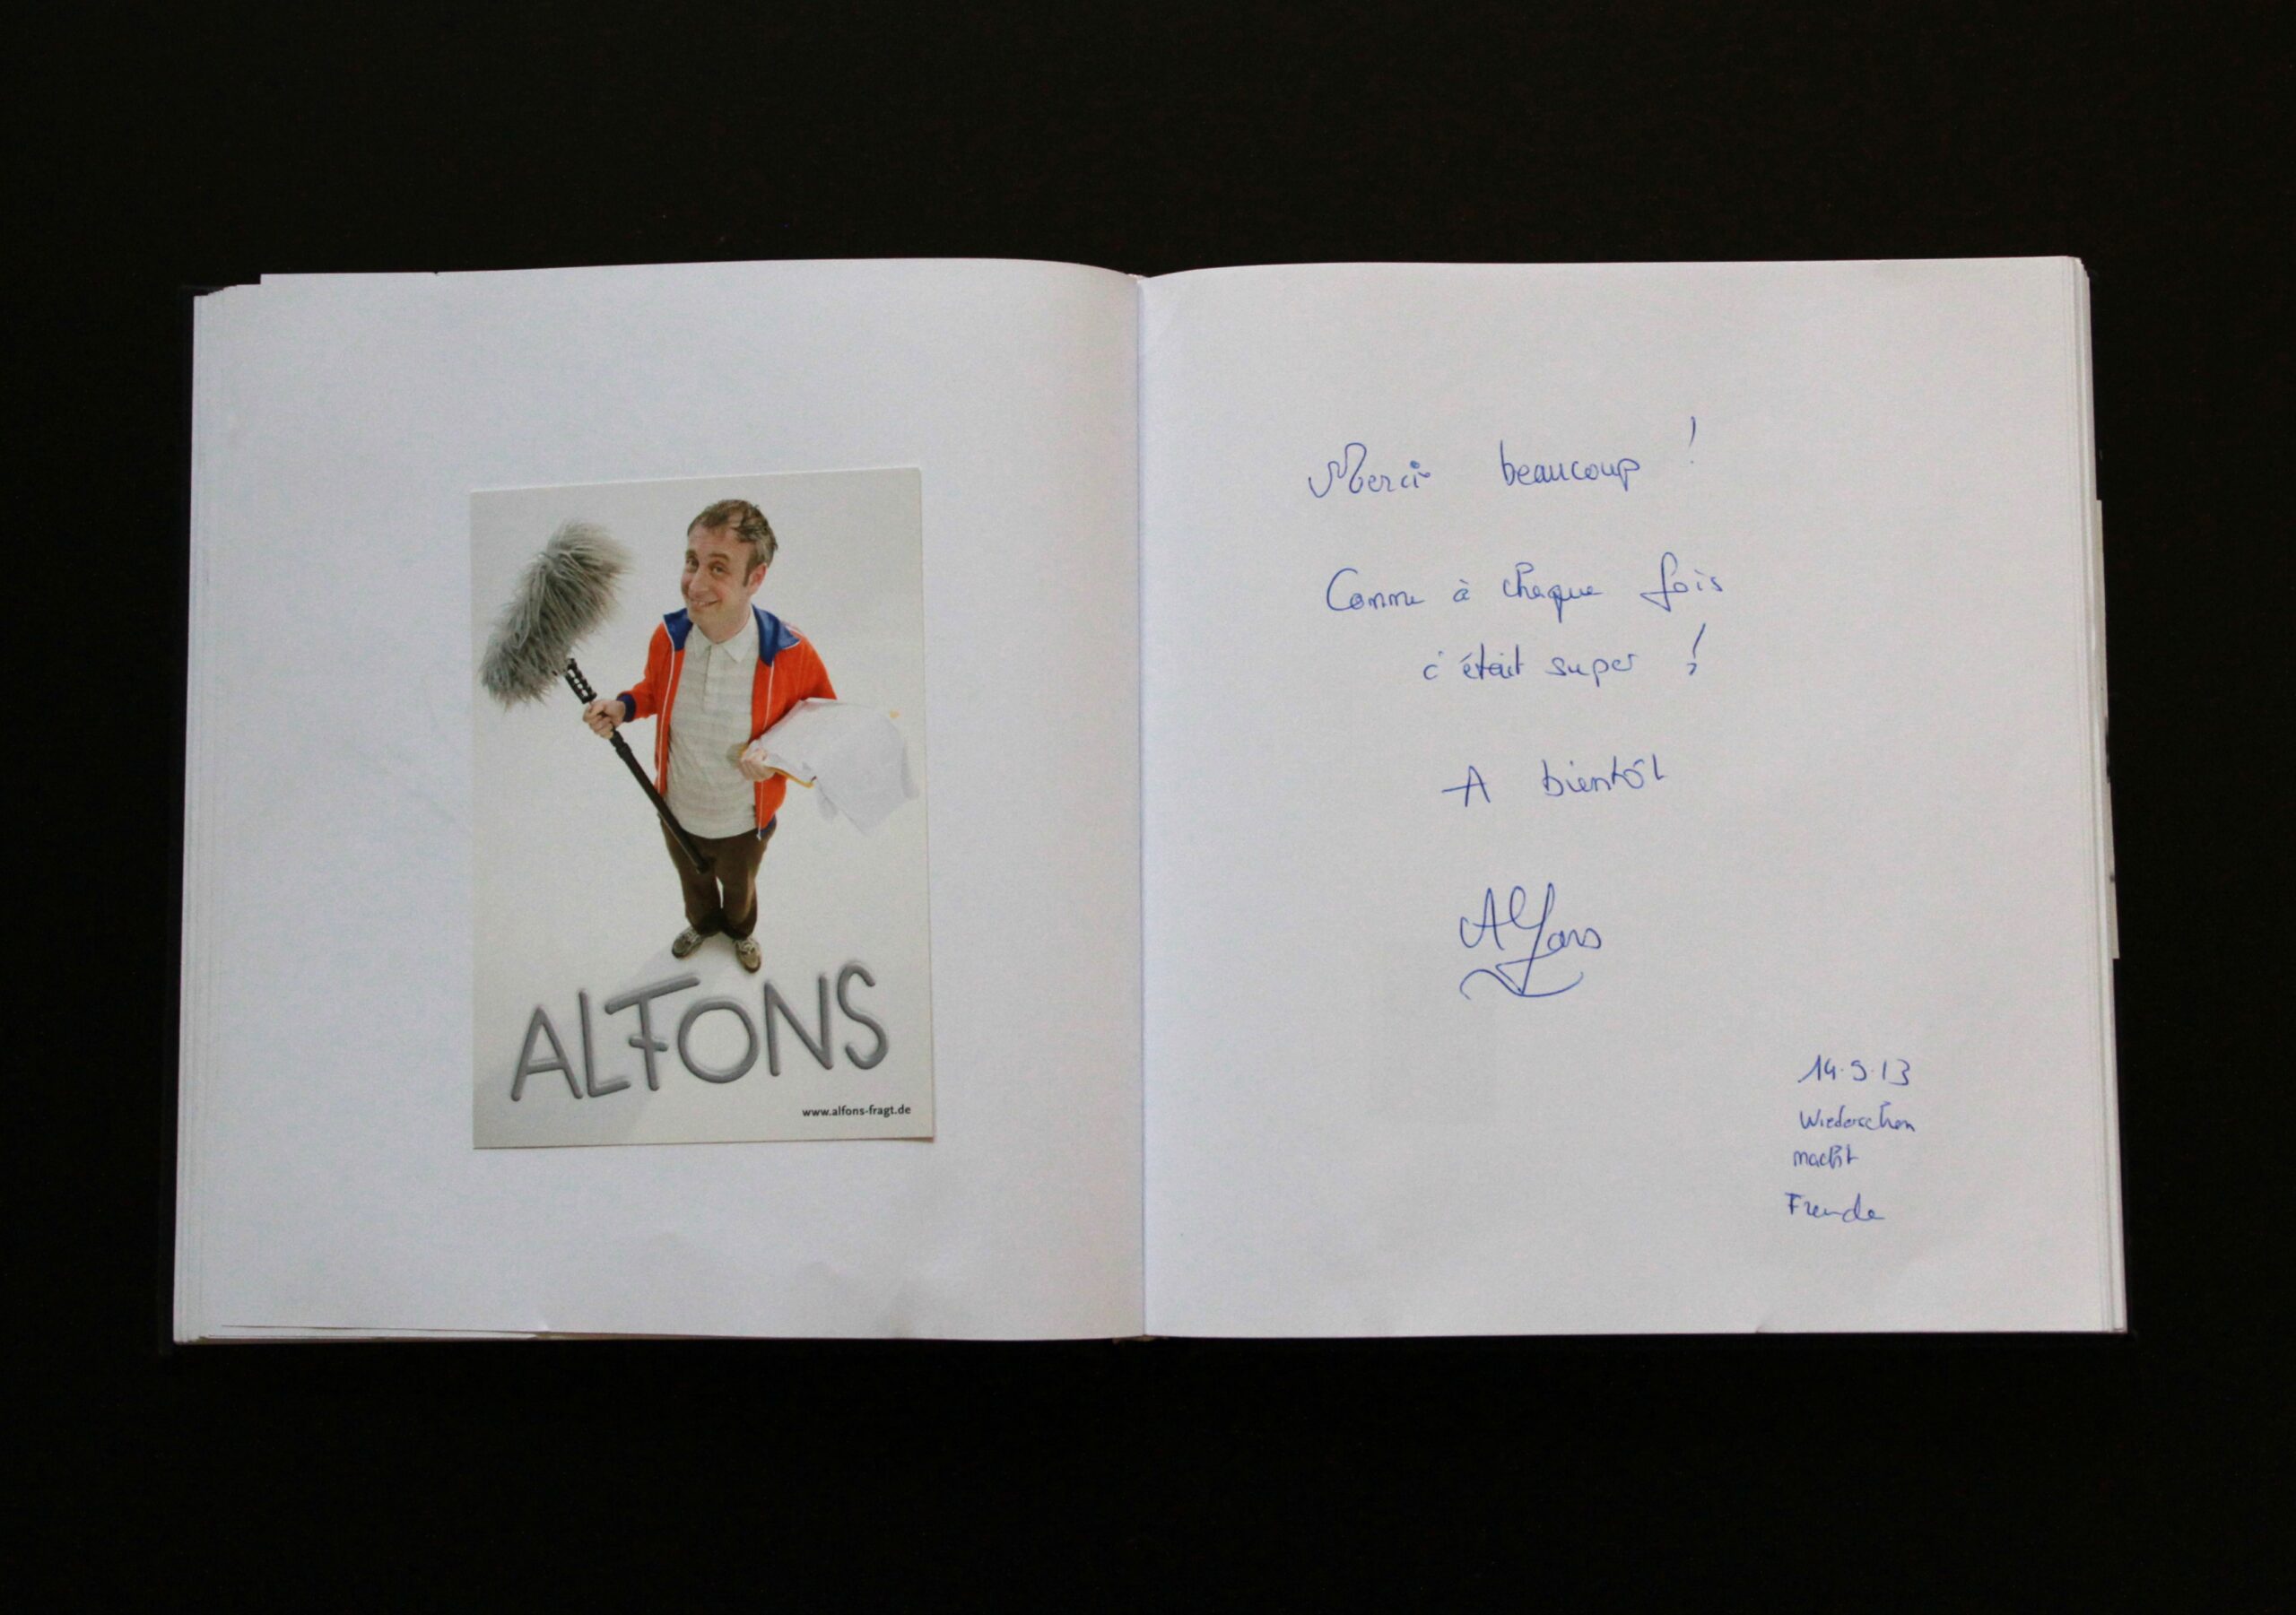 ALFONS
www.alfons-fragt.de
Merci beaucoup !
Comme à chaque fois
c'était super !
A bientôt
Alfons
14.9.13
Wiedersehen
macht
Freude